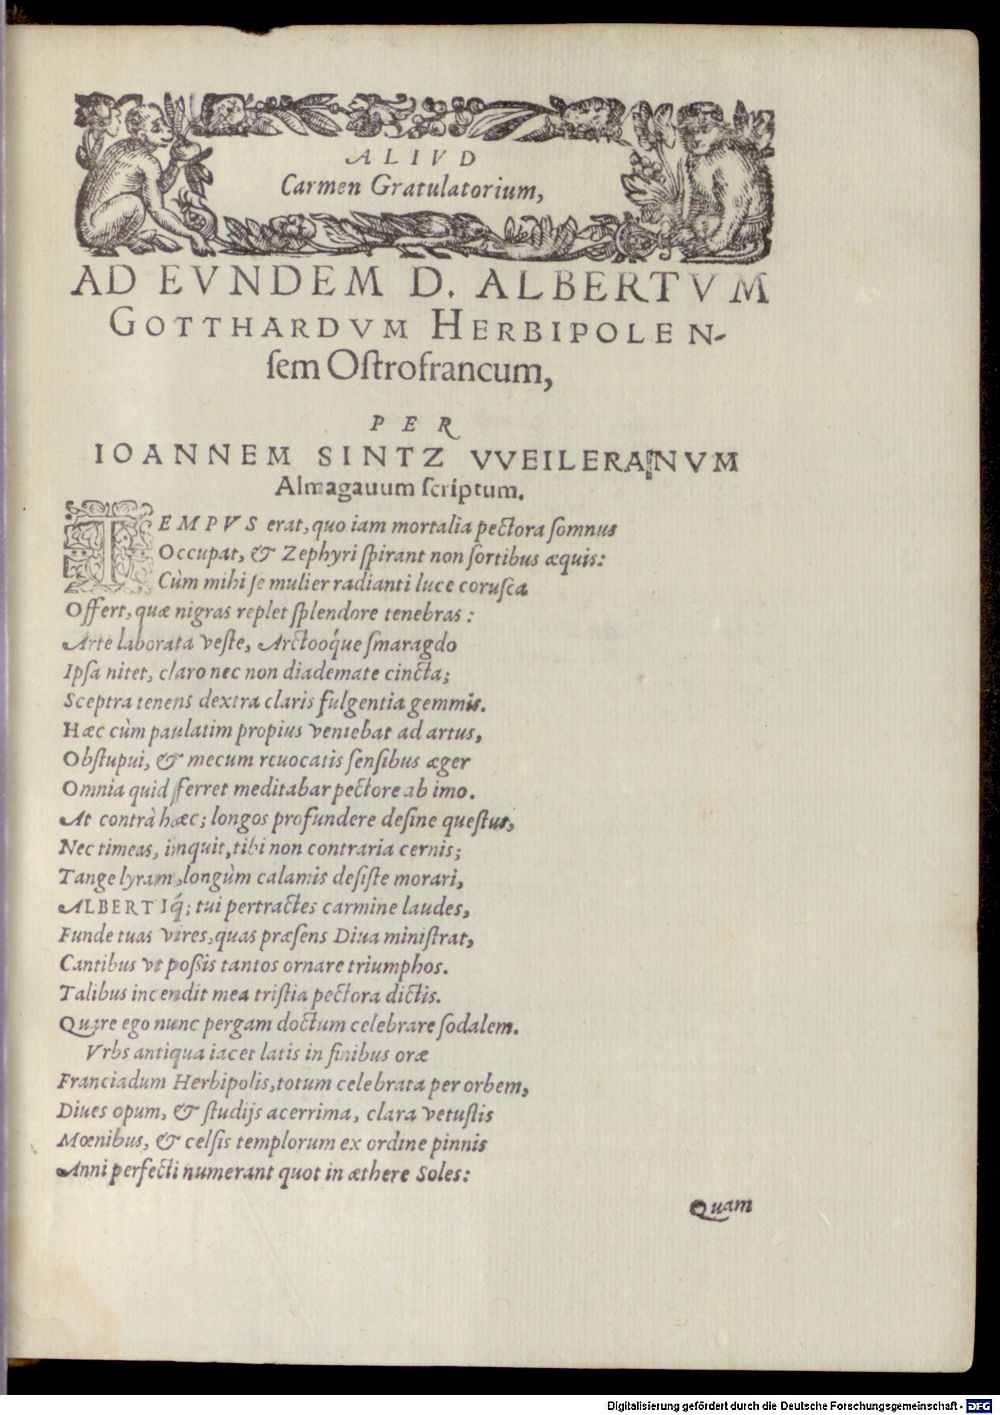 ALIVD
Carmen Gratulatorium,
AD EVNDEM D. ALBERTVM
GOTTHARDVM HERBIPOLEN-
sem Oſtrofrancum,
PER
IOANNEM SINTZ VVEILERANVM
Almagauum ſcriptum.
TEMPVS erat, quo iam mortalia pectora ſomnus
Occupat, & Zephyri ſpirant non ſortibus æquis:
Cùm mihi ſe mulier radianti luce coruſca
Offert, quæ nigras replet ſplendore tenebras:
Arte laborata veſte, Arctooq́ue ſmaragdo
Ipſa nitet, claro nec non diademate cincta;
Sceptra tenens dextra claris fulgentia gemmis.
Hæc cùm paulatim propius veniebat ad artus,
Obſtupui, & mecum reuocatis ſenſibus æger
Omnia quid ferret meditabar pectore ab imo.
At contrà hæc; longos profundere deſine queſtus,
Nec timeas, inquit, tibi non contraria cernis;
Tange lyram, longùm calamis deſiſte morari,
ALBERTIq́; tui pertractes carmine laudes,
Funde tuas vires, quas præſens Diua miniſtrat,
Cantibus vt poſsis tantos ornare triumphos.
Talibus incendit mea triſtia pectora dictis.
Quare ego nunc pergam doctum celebrare ſodalem.
Vrbs antiqua iacet latis in finibus oræ
Franciadum Herbipolis, totum celebrata per orbem,
Diues opum, & ſtudijs acerrima, clara vetuſtis
Mœnibus, & celſis templorum ex ordine pinnis
Anni perfecti numerant quot in æthere Soles:
Quam
Digitalisierung gefördert durch die Deutsche Forschungsgemeinschaft - DFG